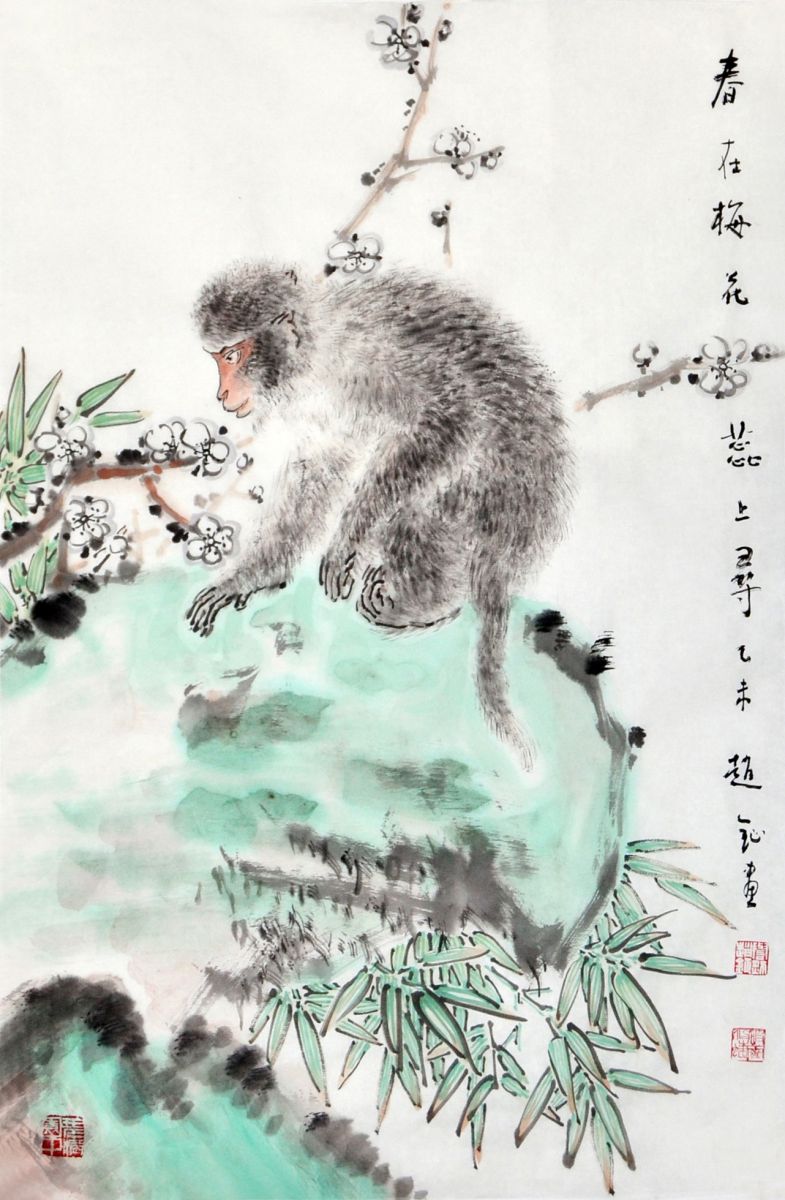 春在梅花蕊上寻乙未赵钲画